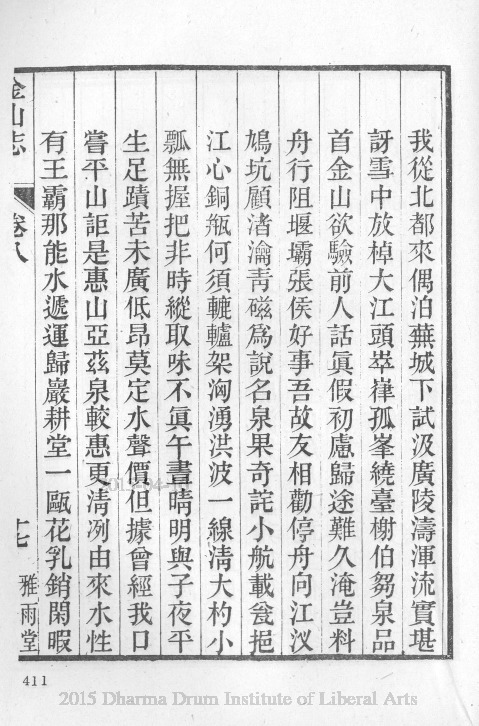 我從北都來偶泊蕪城下試汲廣陵濤渾流實堪
訝雪中放棹大江頭崒嵂孤峯繞臺榭伯芻泉品
首金山欲驗前人話眞假初慮歸途難久淹豈料
舟行阻堰壩張侯好事吾故友相勸停舟向江汊
鳩坑顧渚瀹靑磁爲說名泉果奇詫小航載瓮挹
江心銅甁何須轆轤架洶湧洪波一線淸大杓小
瓢無握把非時縱取味不眞午晝晴明與子夜平
生足蹟苦未廣低昂莫定水聲價但據曾經我口
嘗平山詎是惠山亞茲泉較惠更淸冽由來水性
有王霸那能水遞運歸巖耕堂一甌花乳銷閑暇
金山志
卷八
十七
雅雨堂
411
2015 Dharma Drum Institute of Liberal Arts